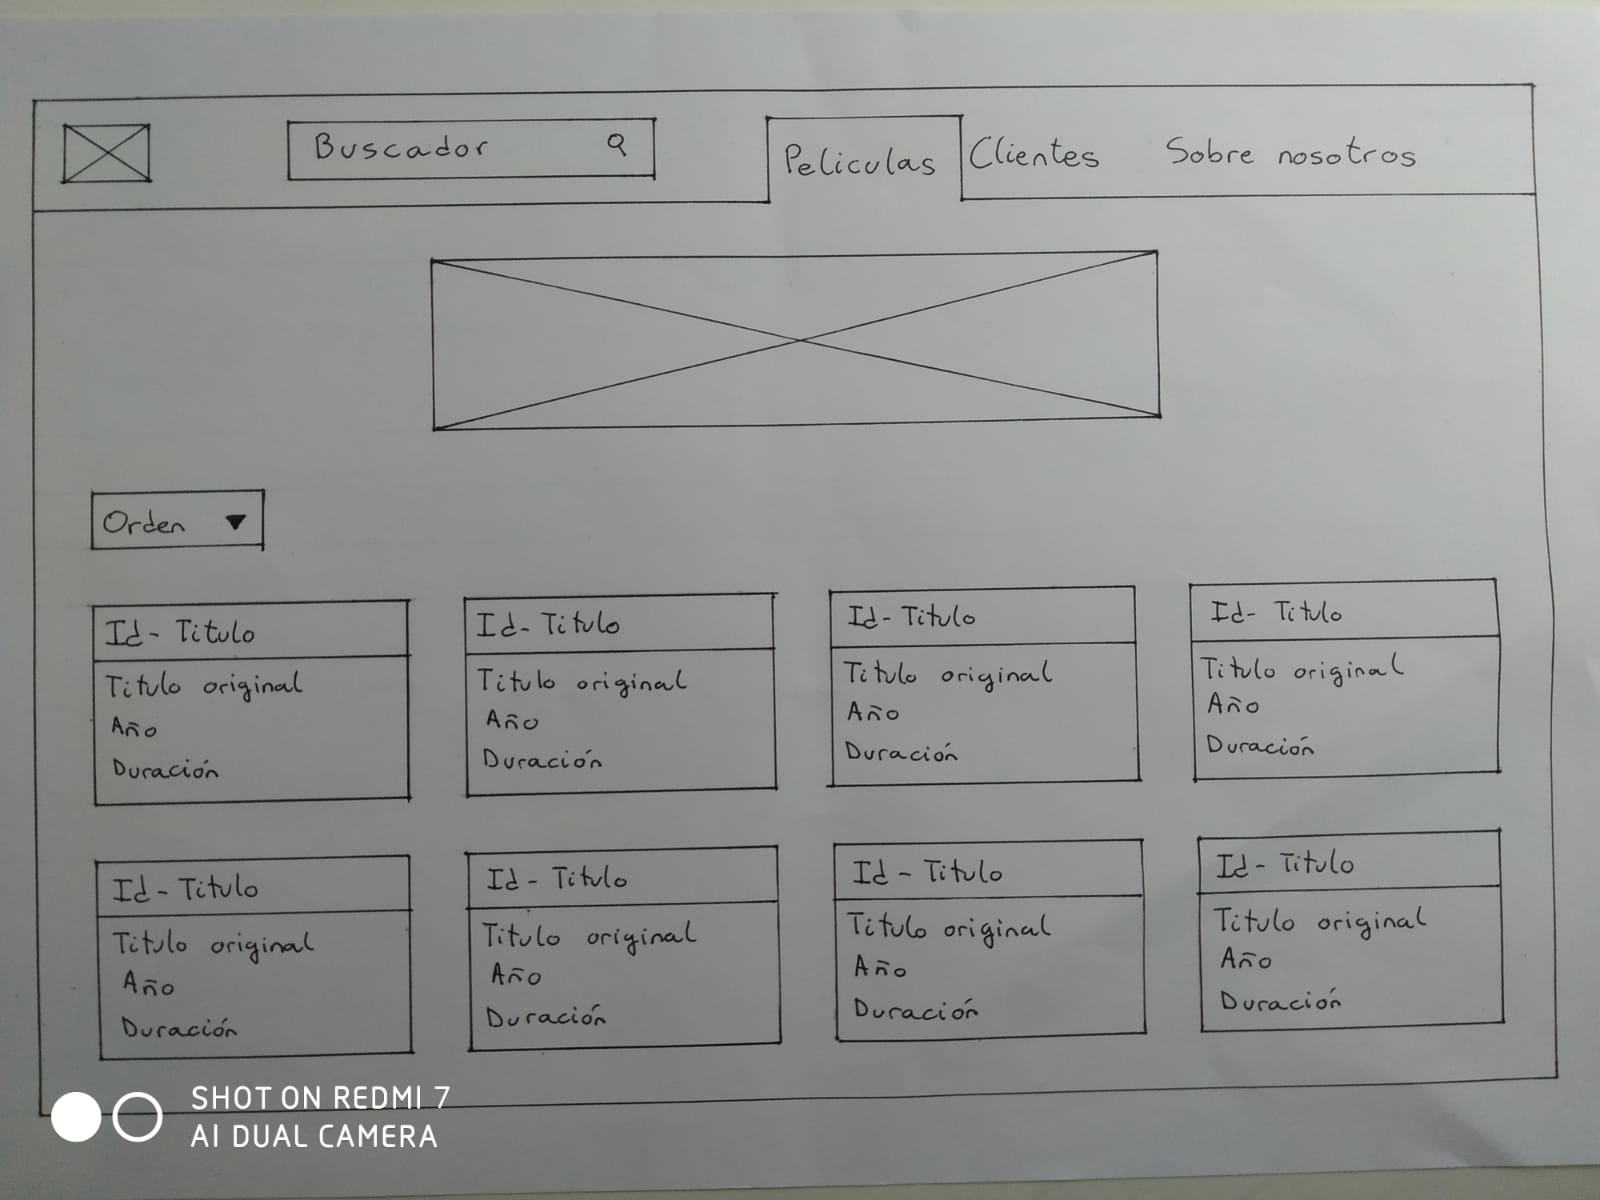 Buscador
Peliculas
Clientes
Sobre nosotros
Orden
Id - Titulo
Titulo original
Año
Duración
Id - Titulo
Titulo original
Año
Duración
Id - Titulo
Titulo original
Año
Duración
Id - Titulo
Titulo original
Año
Duración
Id - Titulo
Titulo original
Año
Duración
Id - Titulo
Titulo original
Año
Duración
Id - Titulo
Titulo original
Año
Duración
Id - Titulo
Titulo original
Año
Duración
SHOT ON REDMI 7
AI DUAL CAMERA